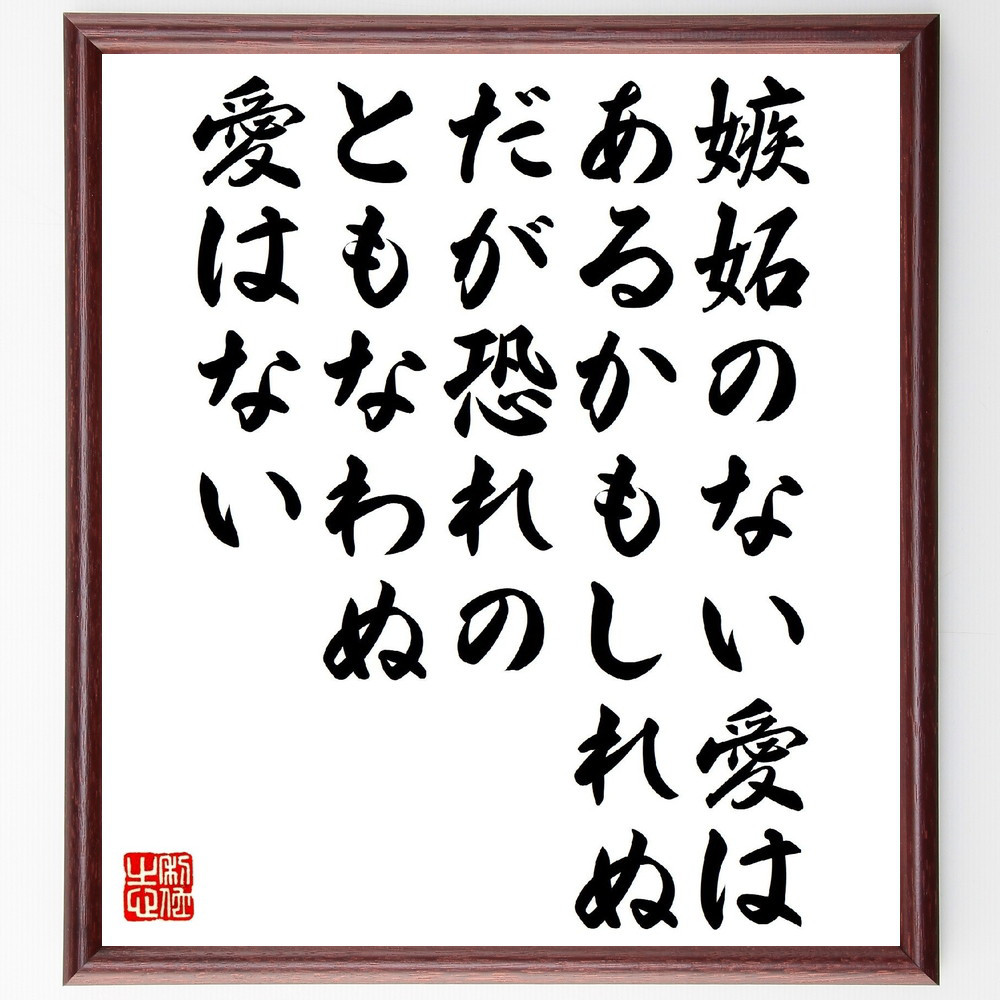 嫉妬のない愛は
あるかもしれぬ
だが恐れの
ともなわぬ
愛はない